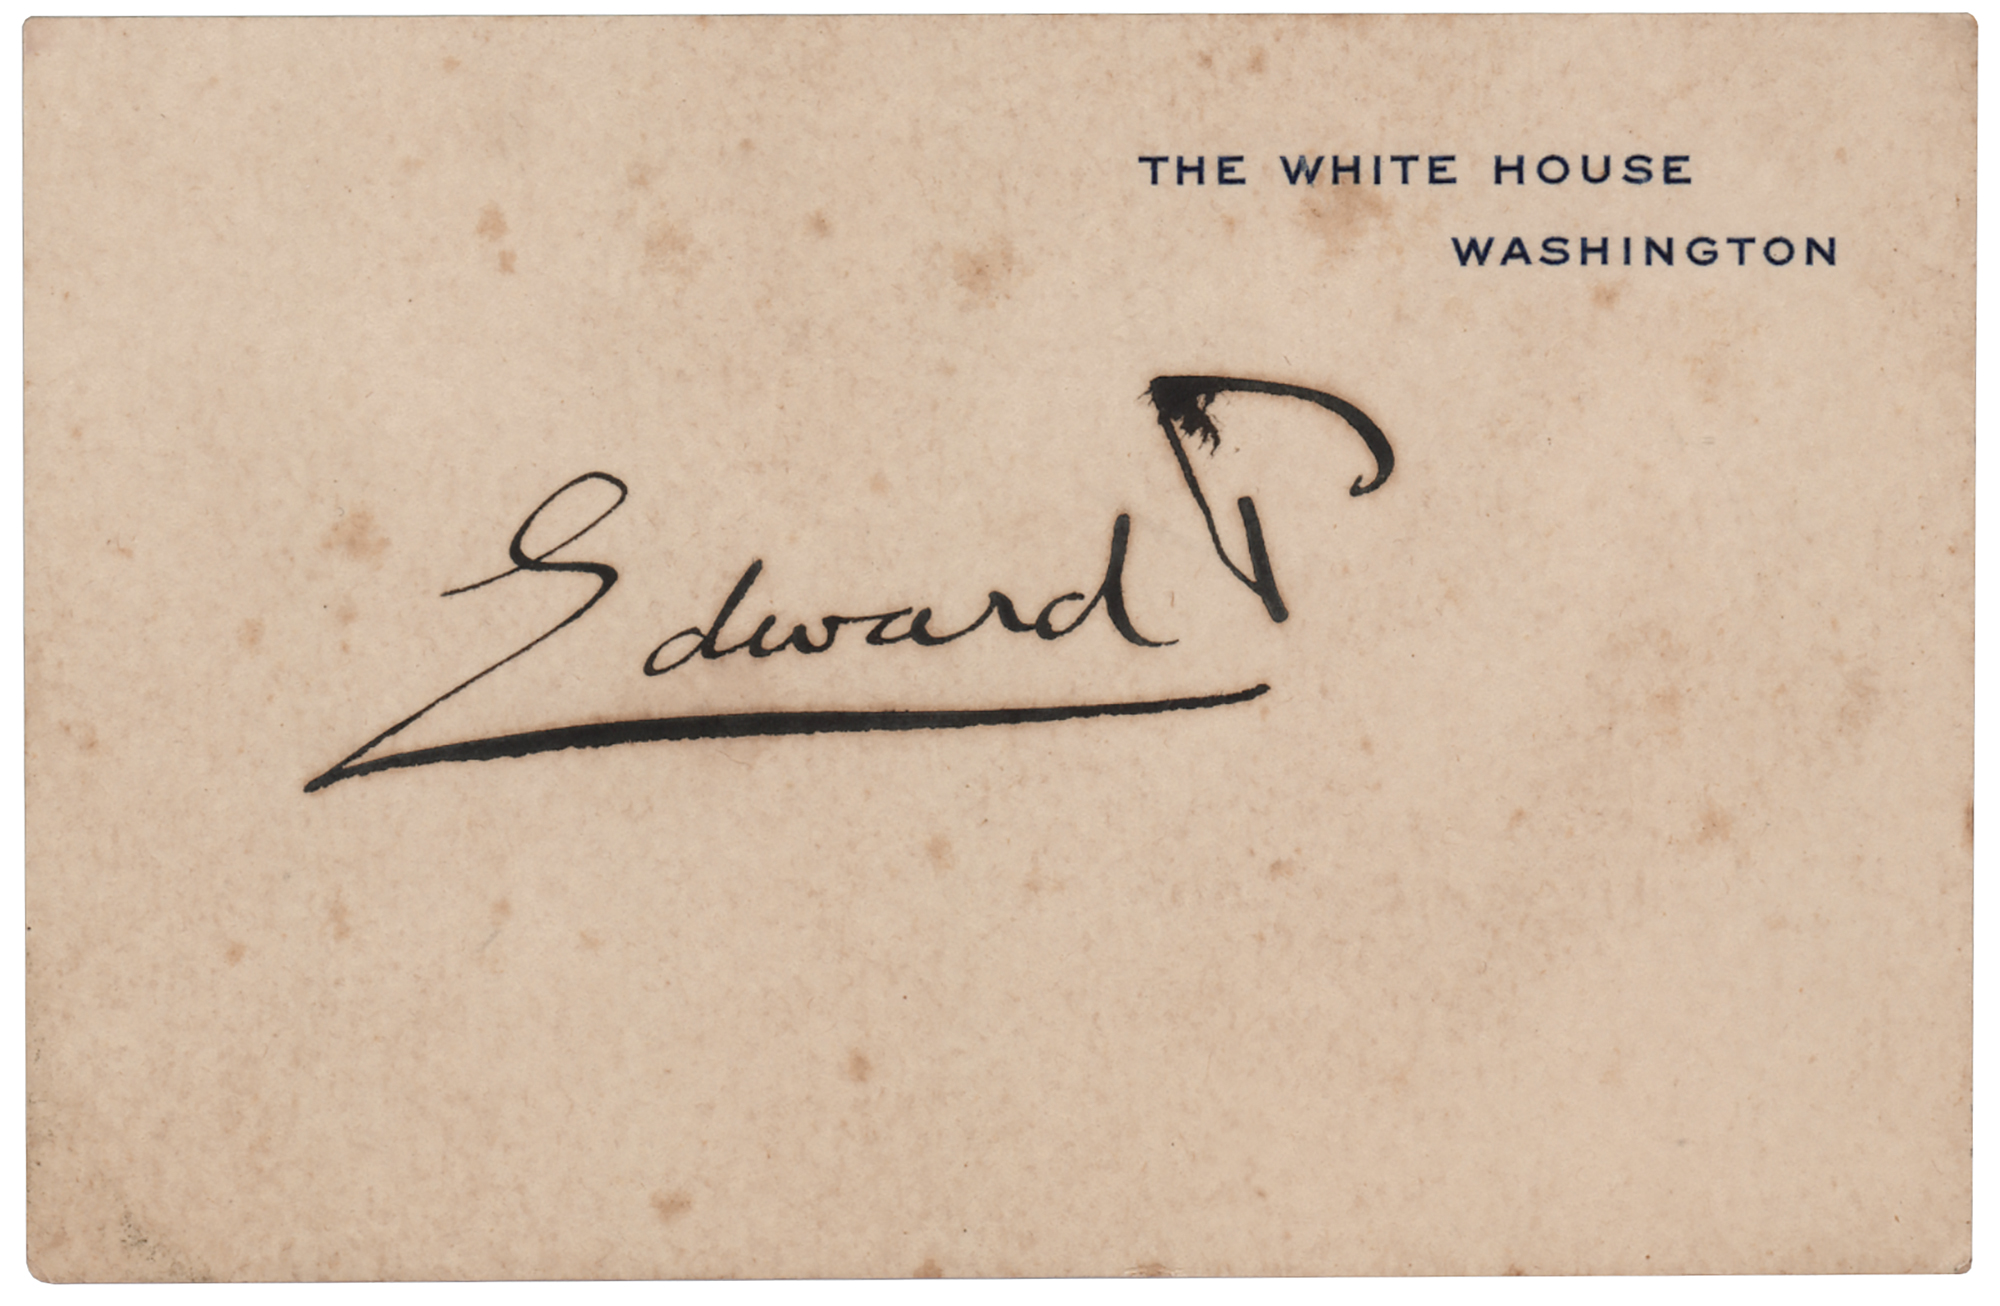 THE WHITE HOUSE
WASHINGTON
Edward P